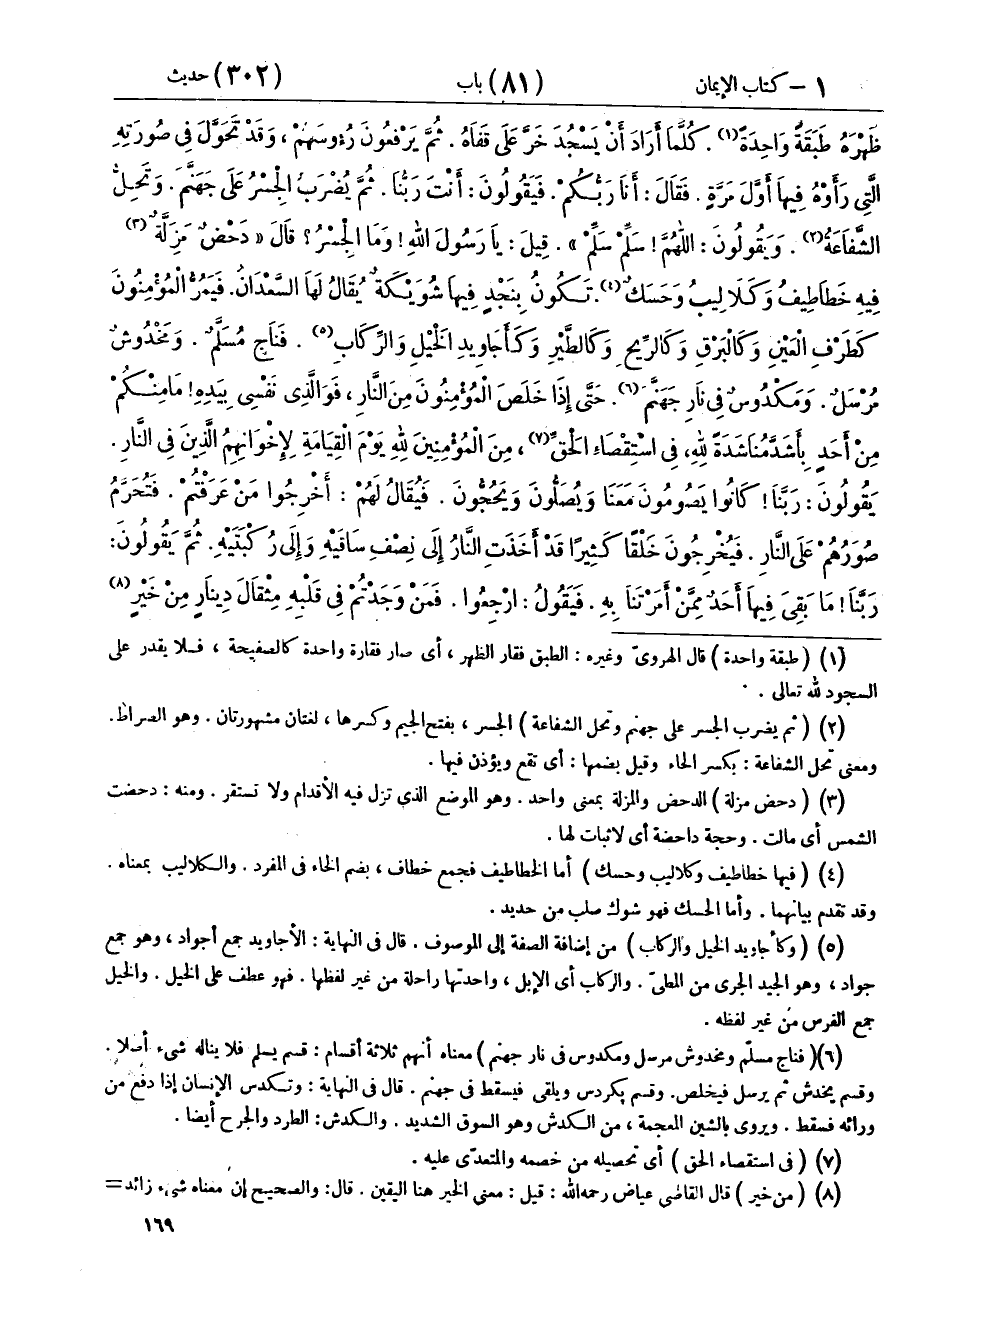 ١ – كتاب الإيمان (٨١) باب (٣٠٢) حديث
ظَهْرَهُ طَبَقَةً وَاحِدَةً(١). كُلَّمَا أَرَادَ أَنْ يَسْجُدَ خَرَّ عَلَى قَفَاهُ. ثُمَّ يَرْفَعُونَ رُءُوسَهُمْ، وَقَدْ تَحَوَّلَ فِي صُورَتِهِ
الَّتِي رَأَوْهُ فِيهَا أَوَّلَ مَرَّةٍ. فَقَالَ: أَنَا رَبُّكُمْ. فَيَقُولُونَ: أَنْتَ رَبُّنَا. ثُمَّ يُضْرَبُ الْجِسْرُ عَلَى جَهَنَّمَ. وَتَحِلُّ
الشَّفَاعَةُ(٢). وَيَقُولُونَ: اللّٰهُمَّ! سَلِّمْ سَلِّمْ». قِيلَ: يَا رَسُولَ اللهِ! وَمَا الْجِسْرُ؟ قَالَ «دَحْضٌ مَزِلَّةٌ(٣)
فِيهِ خَطَاطِيفُ وَكَلَالِيبُ وَحَسَكٌ(٤). تَكُونُ بِنَجْدٍ فِيهَا شُوَيْكَةٌ يُقَالُ لَهَا السَّعْدَانُ. فَيَمُرُّ الْمُؤْمِنُونَ
كَطَرْفِ الْعَيْنِ وَكَالْبَرْقِ وَكَالرِّيحِ وَكَالطَّيْرِ وَكَأَجَاوِيدِ الْخَيْلِ وَالرِّكَابِ(٥). فَنَاجٍ مُسَلَّمٌ. وَمَخْدُوشٌ
مُرْسَلٌ. وَمَكْدُوسٌ فِي نَارِ جَهَنَّمَ(٦). حَتَّى إِذَا خَلَصَ الْمُؤْمِنُونَ مِنَ النَّارِ، فَوَالَّذِي نَفْسِي بِيَدِهِ! مَا مِنْكُمْ
مِنْ أَحَدٍ بِأَشَدَّ مُنَاشَدَةً لِلهِ، فِي اسْتِقْصَاءِ الْحَقِّ(٧)، مِنَ الْمُؤْمِنِينَ لِلهِ يَوْمَ الْقِيَامَةِ لِإِخْوَانِهِمُ الَّذِينَ فِي النَّارِ.
يَقُولُونَ: رَبَّنَا! كَانُوا يَصُومُونَ مَعَنَا وَيُصَلُّونَ وَيَحُجُّونَ. فَيُقَالُ لَهُمْ: أَخْرِجُوا مَنْ عَرَفْتُمْ. فَتُحَرَّمُ
صُوَرُهُمْ عَلَى النَّارِ. فَيُخْرِجُونَ خَلْقًا كَثِيرًا قَدْ أَخَذَتِ النَّارُ إِلَى نِصْفِ سَاقَيْهِ وَإِلَى رُكْبَتَيْهِ. ثُمَّ يَقُولُونَ:
رَبَّنَا! مَا بَقِيَ فِيهَا أَحَدٌ مِمَّنْ أَمَرْتَنَا بِهِ. فَيَقُولُ: ارْجِعُوا. فَمَنْ وَجَدْتُمْ فِي قَلْبِهِ مِثْقَالَ دِينَارٍ مِنْ خَيْرٍ(٨)
(١) (طبقة واحدة) قال الهروىّ وغيره: الطبق فقار الظهر، أى صار فقارة واحدة كالصفيحة، فلا يقدر على
السجود لله تعالى.
(٢) (ثم يضرب الجسر على جهنم وتحل الشفاعة) الجسر، بفتح الجيم وكسرها، لغتان مشهورتان. وهو الصراط.
ومعنى تحل الشفاعة: بكسر الحاء وقيل بضمها: أى تقع ويؤذن فيها.
(٣) (دحض مزلة) الدحض والمزلة بمعنى واحد. وهو الموضع الذي تزل فيه الأقدام ولا تستقر. ومنه: دحضت
الشمس أى مالت. وحجة داحضة أى لا ثبات لها.
(٤) (فيها خطاطيف وكلاليب وحسك) أما الخطاطيف فجمع خطاف، بضم الخاء فى المفرد. والكلاليب بمعناه.
وقد تقدم بيانهما. وأما الحسك فهو شوك صلب من حديد.
(٥) (وكأجاويد الخيل والركاب) من إضافة الصفة إلى الموصوف. قال فى النهاية: الأجاويد جمع أجواد، وهو جمع
جواد، وهو الجيد الجرى من المطىّ. والركاب أى الإبل، واحدتها راحلة من غير لفظها. فهو عطف على الخيل. والخيل
جمع الفرس من غير لفظه.
(٦) (فناج مسلّم ومخدوش مرسل ومكدوس فى نار جهنم) معناه أنهم ثلاثة أقسام: قسم يسلم فلا يناله شىء أصلا.
وقسم يخدش ثم يرسل فيخلص. وقسم يكردس ويلقى فيسقط فى جهنم. قال فى النهاية: وتكدس الإنسان إذا دفع من
ورائه فسقط. ويروى بالشين المعجمة، من الكدش وهو السوق الشديد. والكدش: الطرد والجرح أيضا.
(٧) (فى استقصاء الحق) أى تحصيله من خصمه والمتعدّى عليه.
(٨) (من خير) قال القاضى عياض رحمه الله: قيل: معنى الخير هنا اليقين. قال: والصحيح إن معناه شىء زائد =
١٦٩